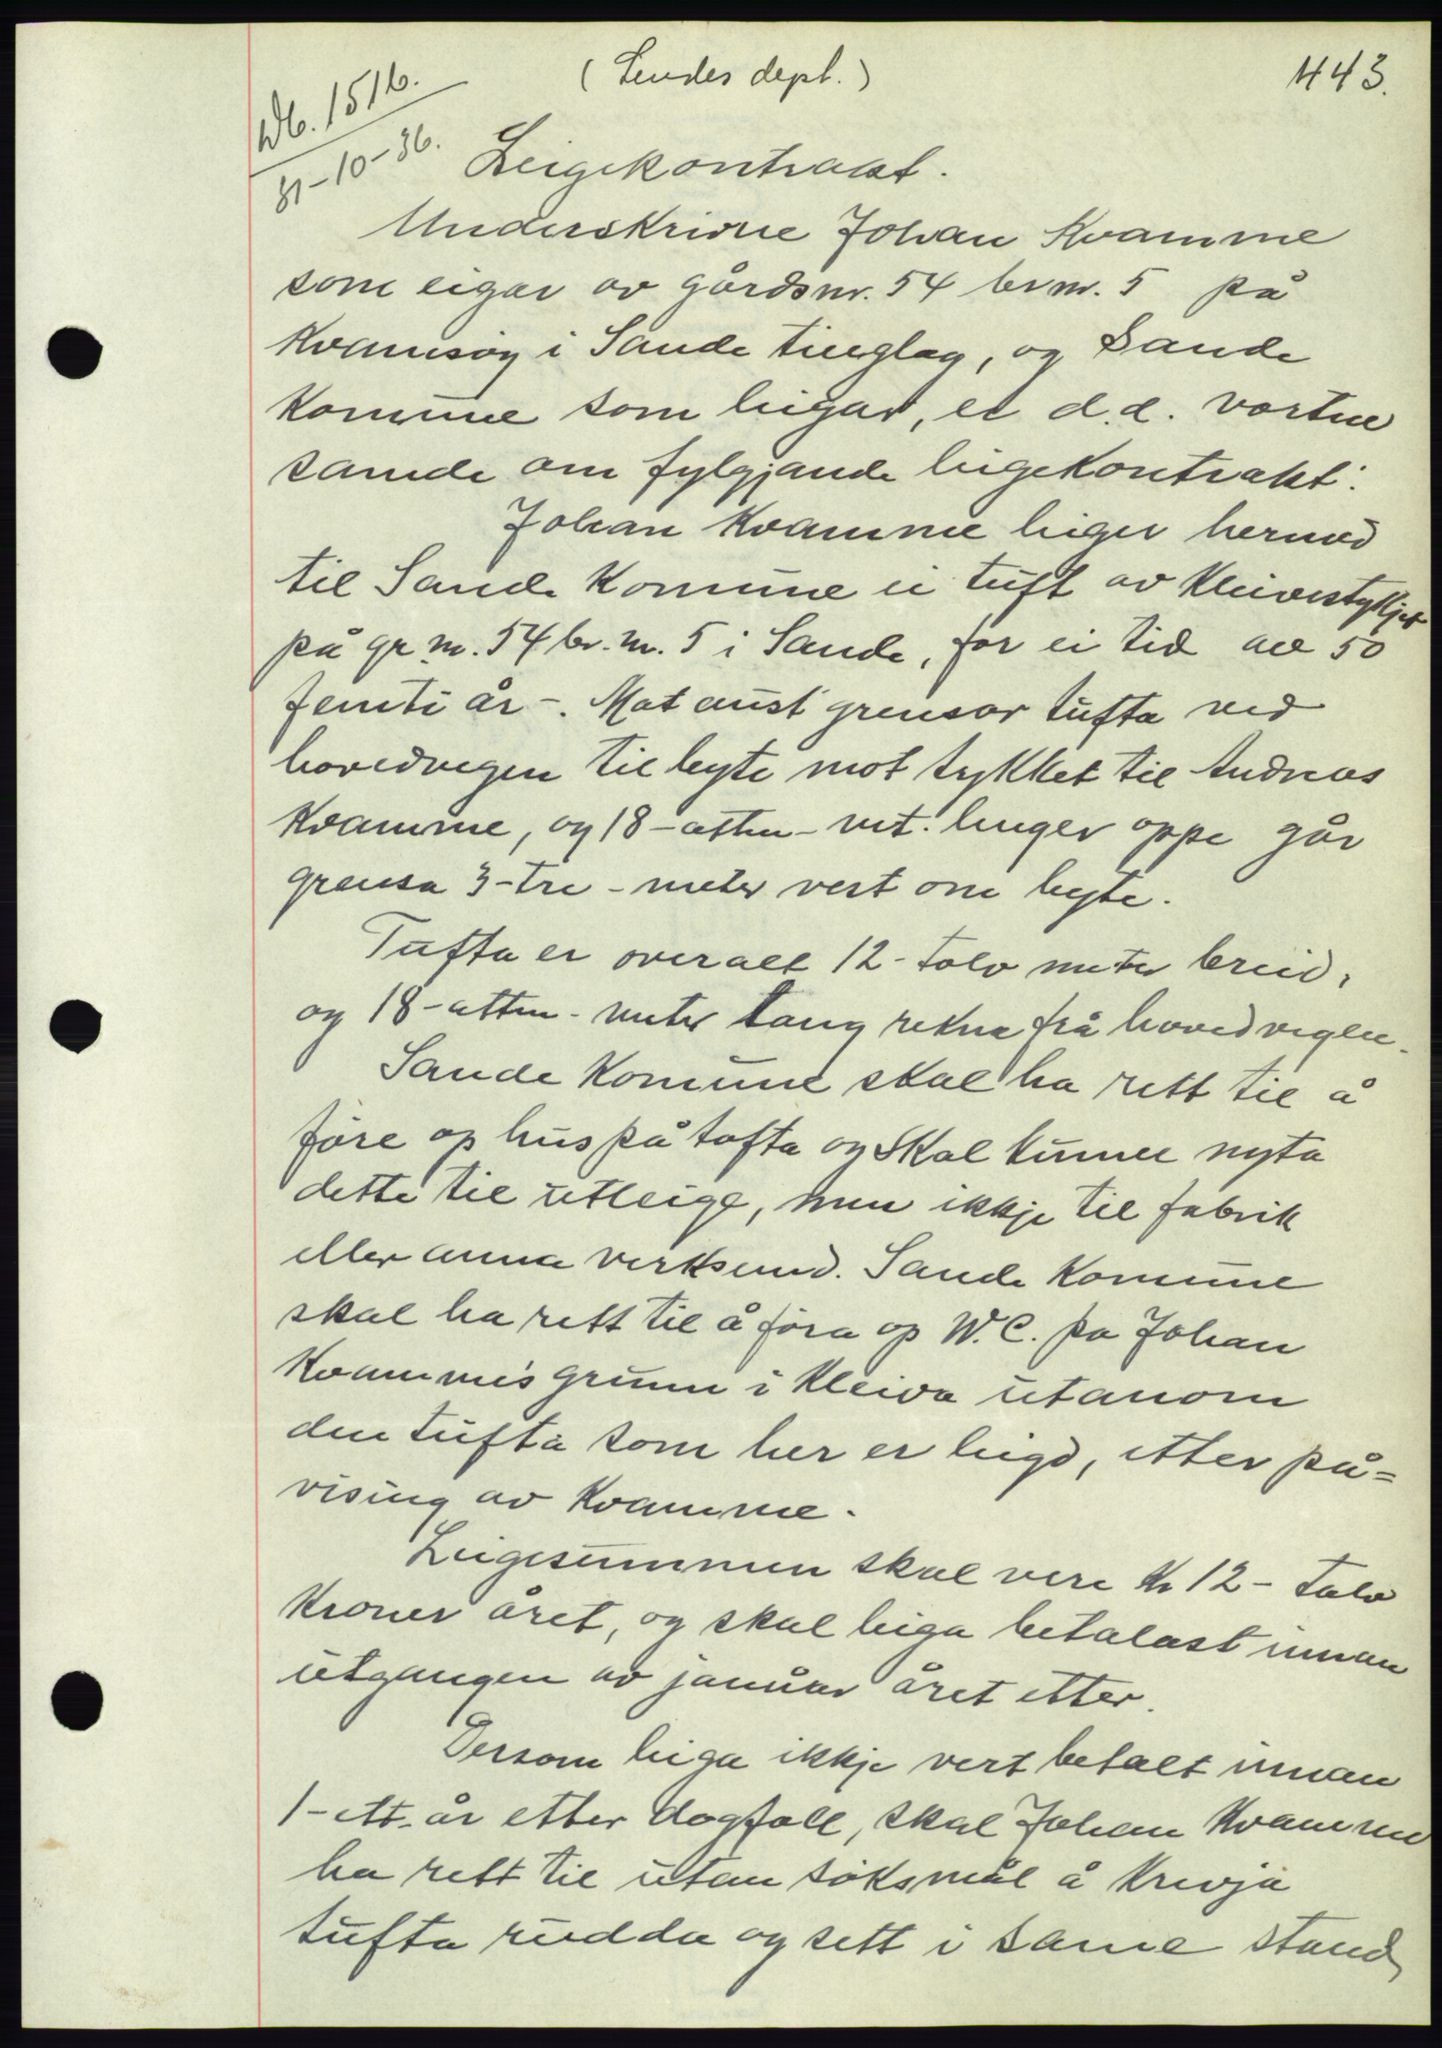 (Sendes dept.)
443.
Db. 1516.
31-10-36.
Leigekontrakt.
Underskrivne Johan Kvamme
som eigar av gårdsnr. 54 br.nr. 5 på
Kvamsøy i Sande tinglag, og Sande
Komune som leigar, er d.d. vortne
samde om fylgjande leigekontrakt:
Johan Kvamme leiger hermed
til Sande Komune ei tuft av Kleivestykkjet
på gr.nr. 54 br.nr. 5 i Sande, for ei tid av 50
femti år-. Mot aust grensar tufta ved
hovedvegen til byte mot stykket til Andreas
Kvamme, og 18-atten- mt. lenger oppe går
grensa 3-tre-meter vest om byte.
Tufta er overalt 12-tolv meter breid,
og 18-atten-meter lang rekna frå hovedvegen.
Sande Komune skal ha rett til å
føre op hus på tufta og skal kunne nyta
dette til utleige, men ikkje til fabrik
eller anna verksemd. Sande Komune
skal ha rett til å føra op W.C. på Johan
Kvamme's grunn i Kleiva utanom
den tufta som her er leigd, etter på=
vising av Kvamme.
Leigesummen skal vere Kr 12- tolv
Kroner året, og skal leiga betalast innan
utgangen av januar året etter.
Dersom leiga ikkje vert betalt innan
1-ett-år etter dagfall, skal Johan Kvamme
ha rett til utan søksmål å krevja
tufta rudda og sett i same stand,